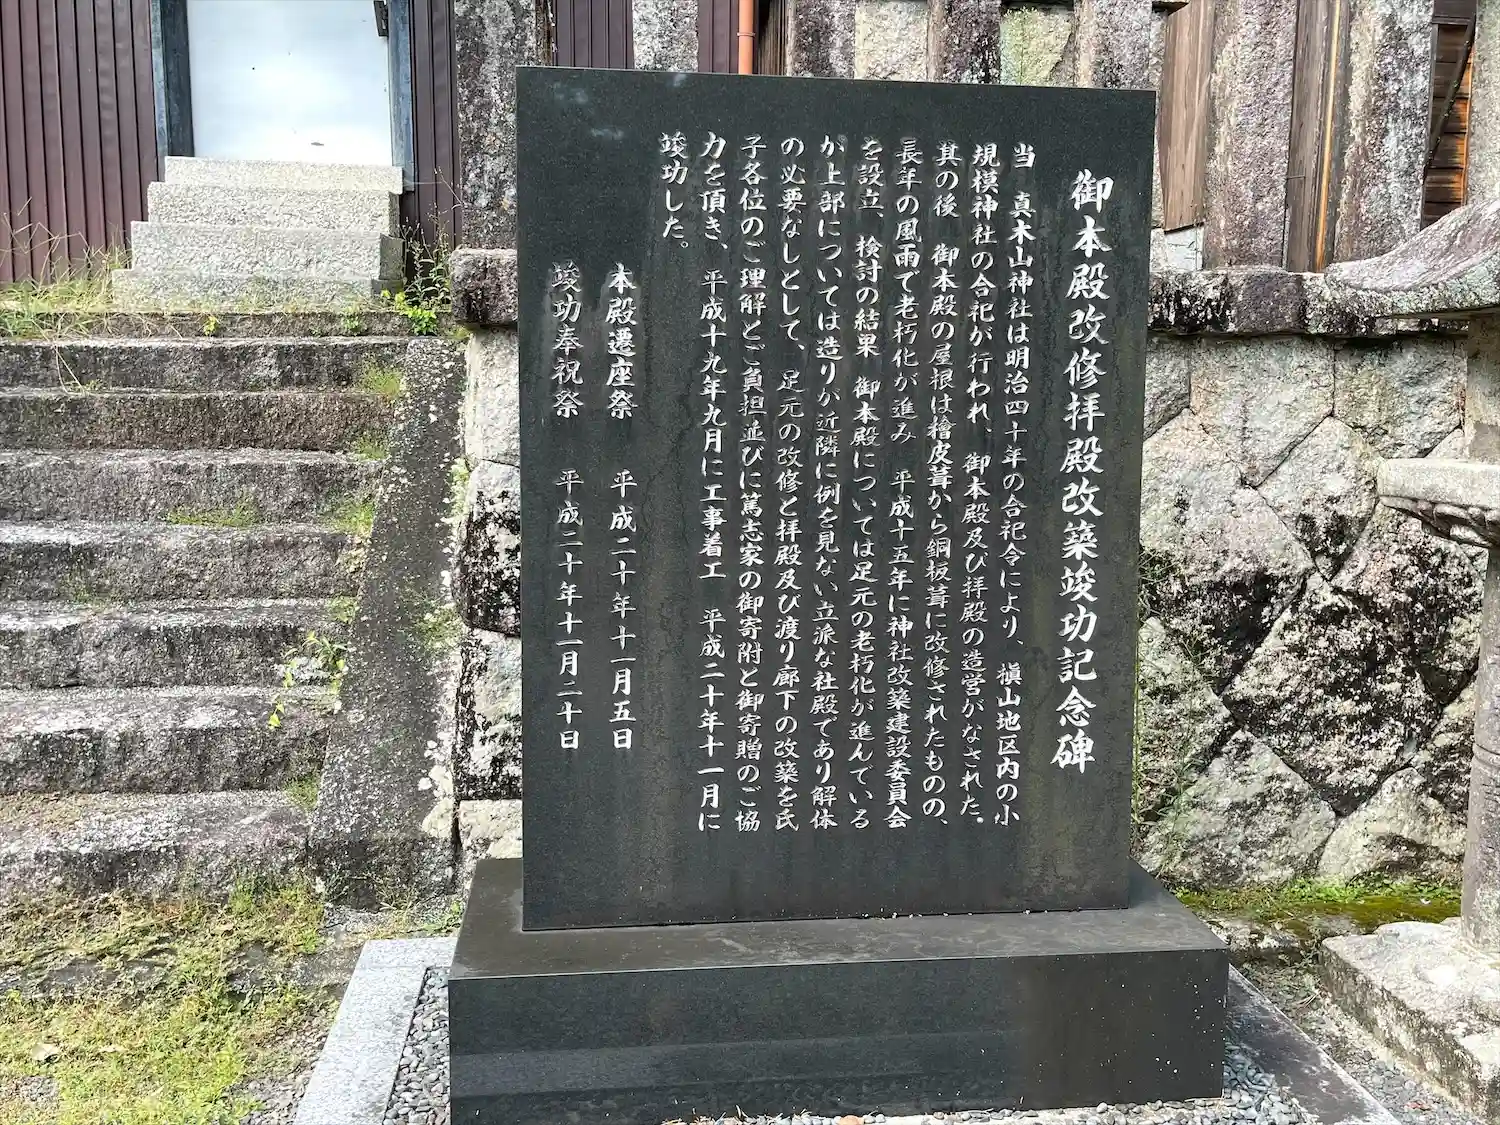 御本殿改修拝殿改築竣功記念碑
当 真木山神社は明治四十年の合祀令により、槇山地区内の小
規模神社の合祀が行われ、御本殿及び拝殿の造営がなされた。
其の後 御本殿の屋根は檜皮葺から銅板葺に改修されたものの、
長年の風雨で老朽化が進み 平成十五年に神社改築建設委員会
を設立、検討の結果 御本殿については足元の老朽化が進んでいる
が上部については造りが近隣に例を見ない立派な社殿であり解体
の必要なしとして、足元の改修と拝殿及び渡り廊下の改築を氏
子各位のご理解とご負担並びに篤志家の御寄附と御寄贈のご協
力を頂き、平成十九年九月に工事着工 平成二十年十一月に
竣功した。
本殿遷座祭 平成二十年十一月五日
竣功奉祝祭 平成二十年十一月二十日